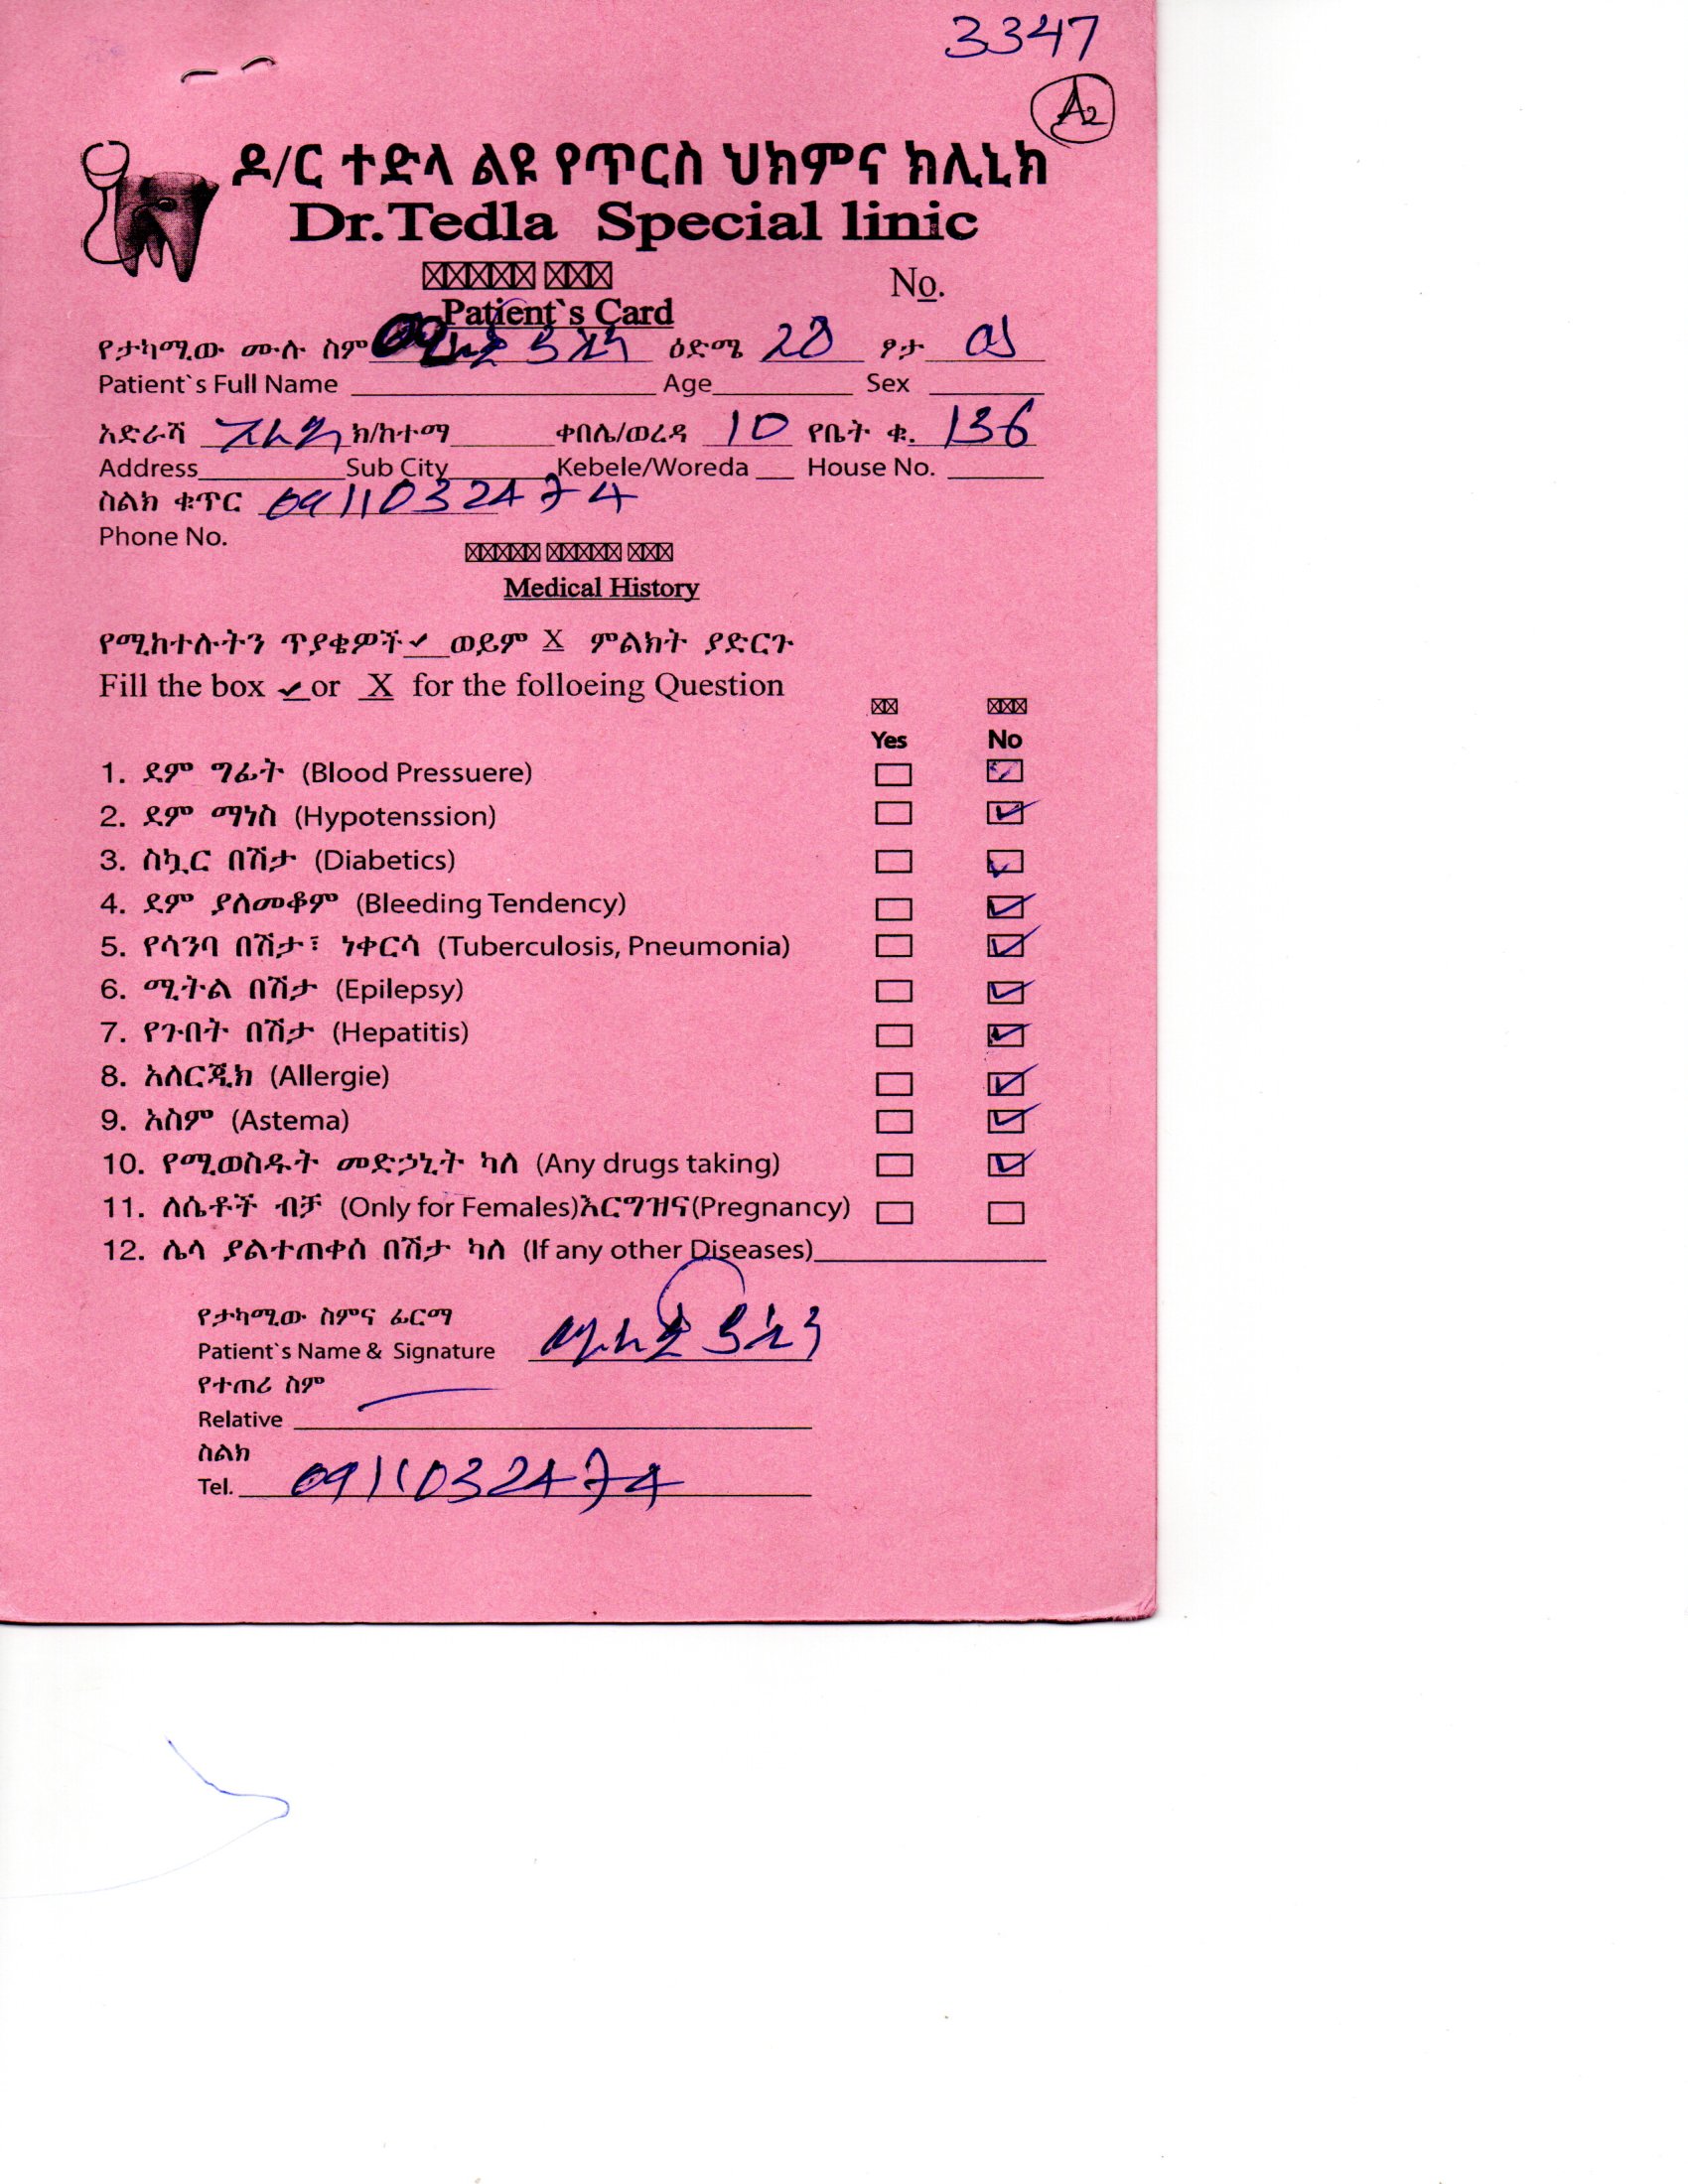 3347
A2
ዶ/ር ተድላ ልዩ የጥርስ ህክምና ክሊኒክ
Dr.Tedla Special linic
No.
Patient`s Card
የታካሚው ሙሉ ስም ዕድሜ 28 ፆታ ወ
Patient`s Full Name Age Sex
አድራሻ ክ/ከተማ ቀበሌ/ወረዳ 10 የቤት ቁ. 136
Address Sub City Kebele/Woreda House No.
ስልክ ቁጥር 0911032474
Phone No.
Medical History
የሚከተሉትን ጥያቄዎች ✓ ወይም X ምልክት ያድርጉ
Fill the box ✓ or X for the folloeing Question
Yes No
1. ደም ግፊት (Blood Pressuere) ☐ ☑
2. ደም ማነስ (Hypotenssion) ☐ ☑
3. ስኳር በሽታ (Diabetics) ☐ ☑
4. ደም ያለመቆም (Bleeding Tendency) ☐ ☑
5. የሳንባ በሽታ፣ ነቀርሳ (Tuberculosis, Pneumonia) ☐ ☑
6. ሚትል በሽታ (Epilepsy) ☐ ☑
7. የጉበት በሽታ (Hepatitis) ☐ ☑
8. አለርጂክ (Allergie) ☐ ☑
9. አስም (Astema) ☐ ☑
10. የሚወስዱት መድኃኒት ካለ (Any drugs taking) ☐ ☑
11. ለሴቶች ብቻ (Only for Females)እርግዝና(Pregnancy) ☐ ☐
12. ሌላ ያልተጠቀሰ በሽታ ካለ (If any other Diseases)
የታካሚው ስምና ፊርማ
Patient`s Name & Signature
የተጠሪ ስም
Relative
ስልክ
Tel. 0911032474